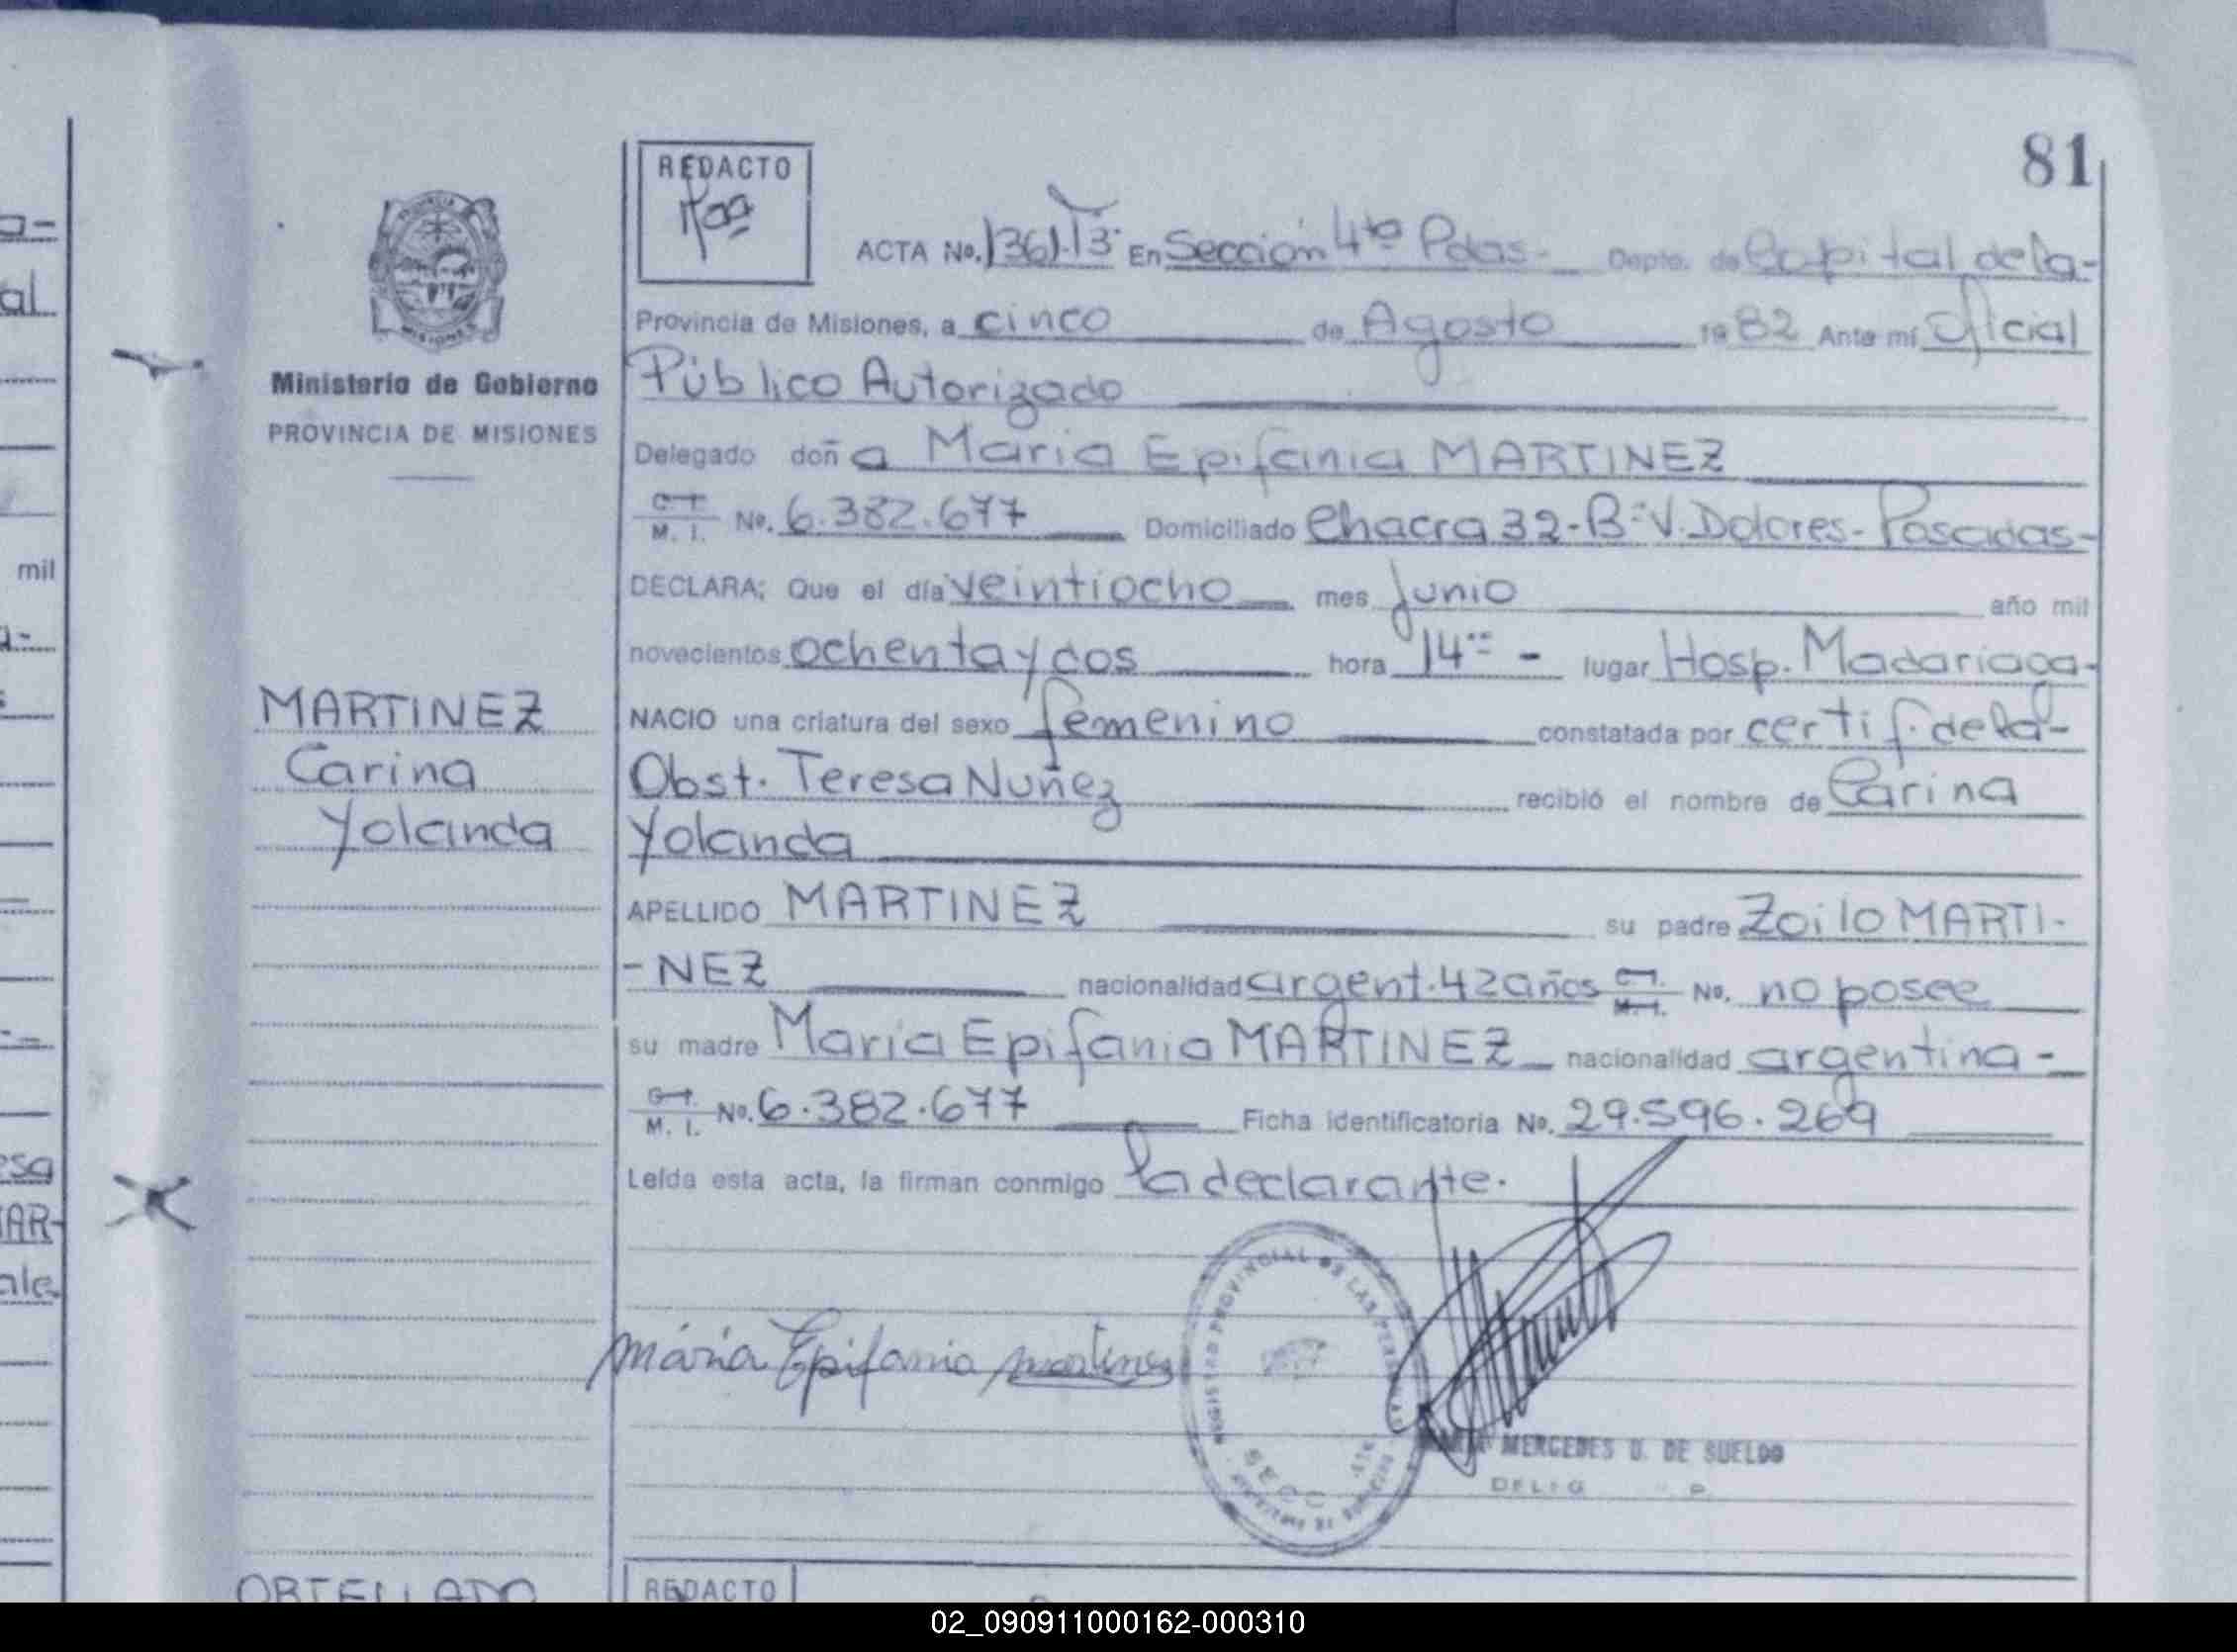 81
REDACTO
ACTA No. 1361-T3- En Sección 4ta Pdas- Depto. de Capital de la-
Provincia de Misiones, a cinco de Agosto 1982 Ante mí Oficial
Público Autorizado
Delegado doña Maria Epifania MARTINEZ
C. I.
M. I. No. 6.382.677 Domiciliado Chacra 32-Bº V. Dolores-Posadas-
DECLARA; Que el día veintiocho mes Junio año mil
novecientos ochenta y dos hora 14 - lugar Hosp. Madariaga-
NACIO una criatura del sexo femenino constatada por certif. de la-
Obst. Teresa Nuñez recibió el nombre de Carina
Yolanda
APELLIDO MARTINEZ su padre Zoilo MARTI-
-NEZ nacionalidad argent. 42 años C. I. M. I. No. no posee
su madre Maria Epifania MARTINEZ nacionalidad argentina-
C. I.
M. I. No. 6.382.677 Ficha identificatoria No. 29.596.269
Leída esta acta, la firman conmigo la declarante.
maria Epifania martinez
REGISTRO PROVINCIAL DE LAS PERSONAS
SECC 4ta
MERCEDES D. DE SUELDO
Ministerio de Gobierno
PROVINCIA DE MISIONES
MARTINEZ
Carina
Yolanda
REDACTO
al
mil
esa
AR-
ale
02_090911000162-000310